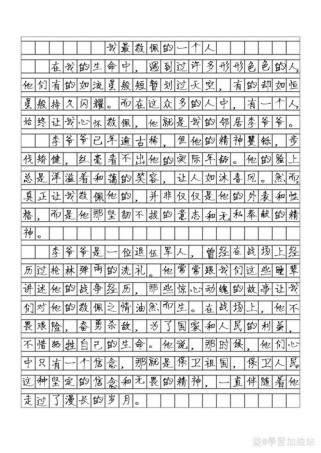 我最敬佩的一个人
在我的生命中，遇到过许多形形色色的人，
他们有的如流星般短暂划过天空，有的却如恒
星般持久闪耀。而在这众多的人中，有一个人，
始终让我心怀敬佩，他就是我的邻居李爷爷。
李爷爷已年逾古稀，但他的精神矍铄，步
伐矫健，丝毫看不出他的实际年龄。他的脸上
总是洋溢着和蔼的笑容，让人如沐春风。然而，
真正让我敬佩他的，并非仅仅是他的外表和性
格，而是他那坚韧不拔的意志和无私奉献的精
神。
李爷爷是一位退伍军人，曾经在战场上经
历过枪林弹雨的洗礼。他常常跟我们这些晚辈
讲述他的战争经历，那些惊心动魄的故事让我
们对他的敬佩之情油然而生。在战场上，他不
畏艰险，奋勇杀敌，为了国家和人民的利益，
不惜牺牲自己的生命。他说，那时候，他们心
中只有一个信念，那就是保卫祖国，保卫人民。
这种坚定的信念和无畏的精神，一直伴随着他
走过了漫长的岁月。
@學習加油站